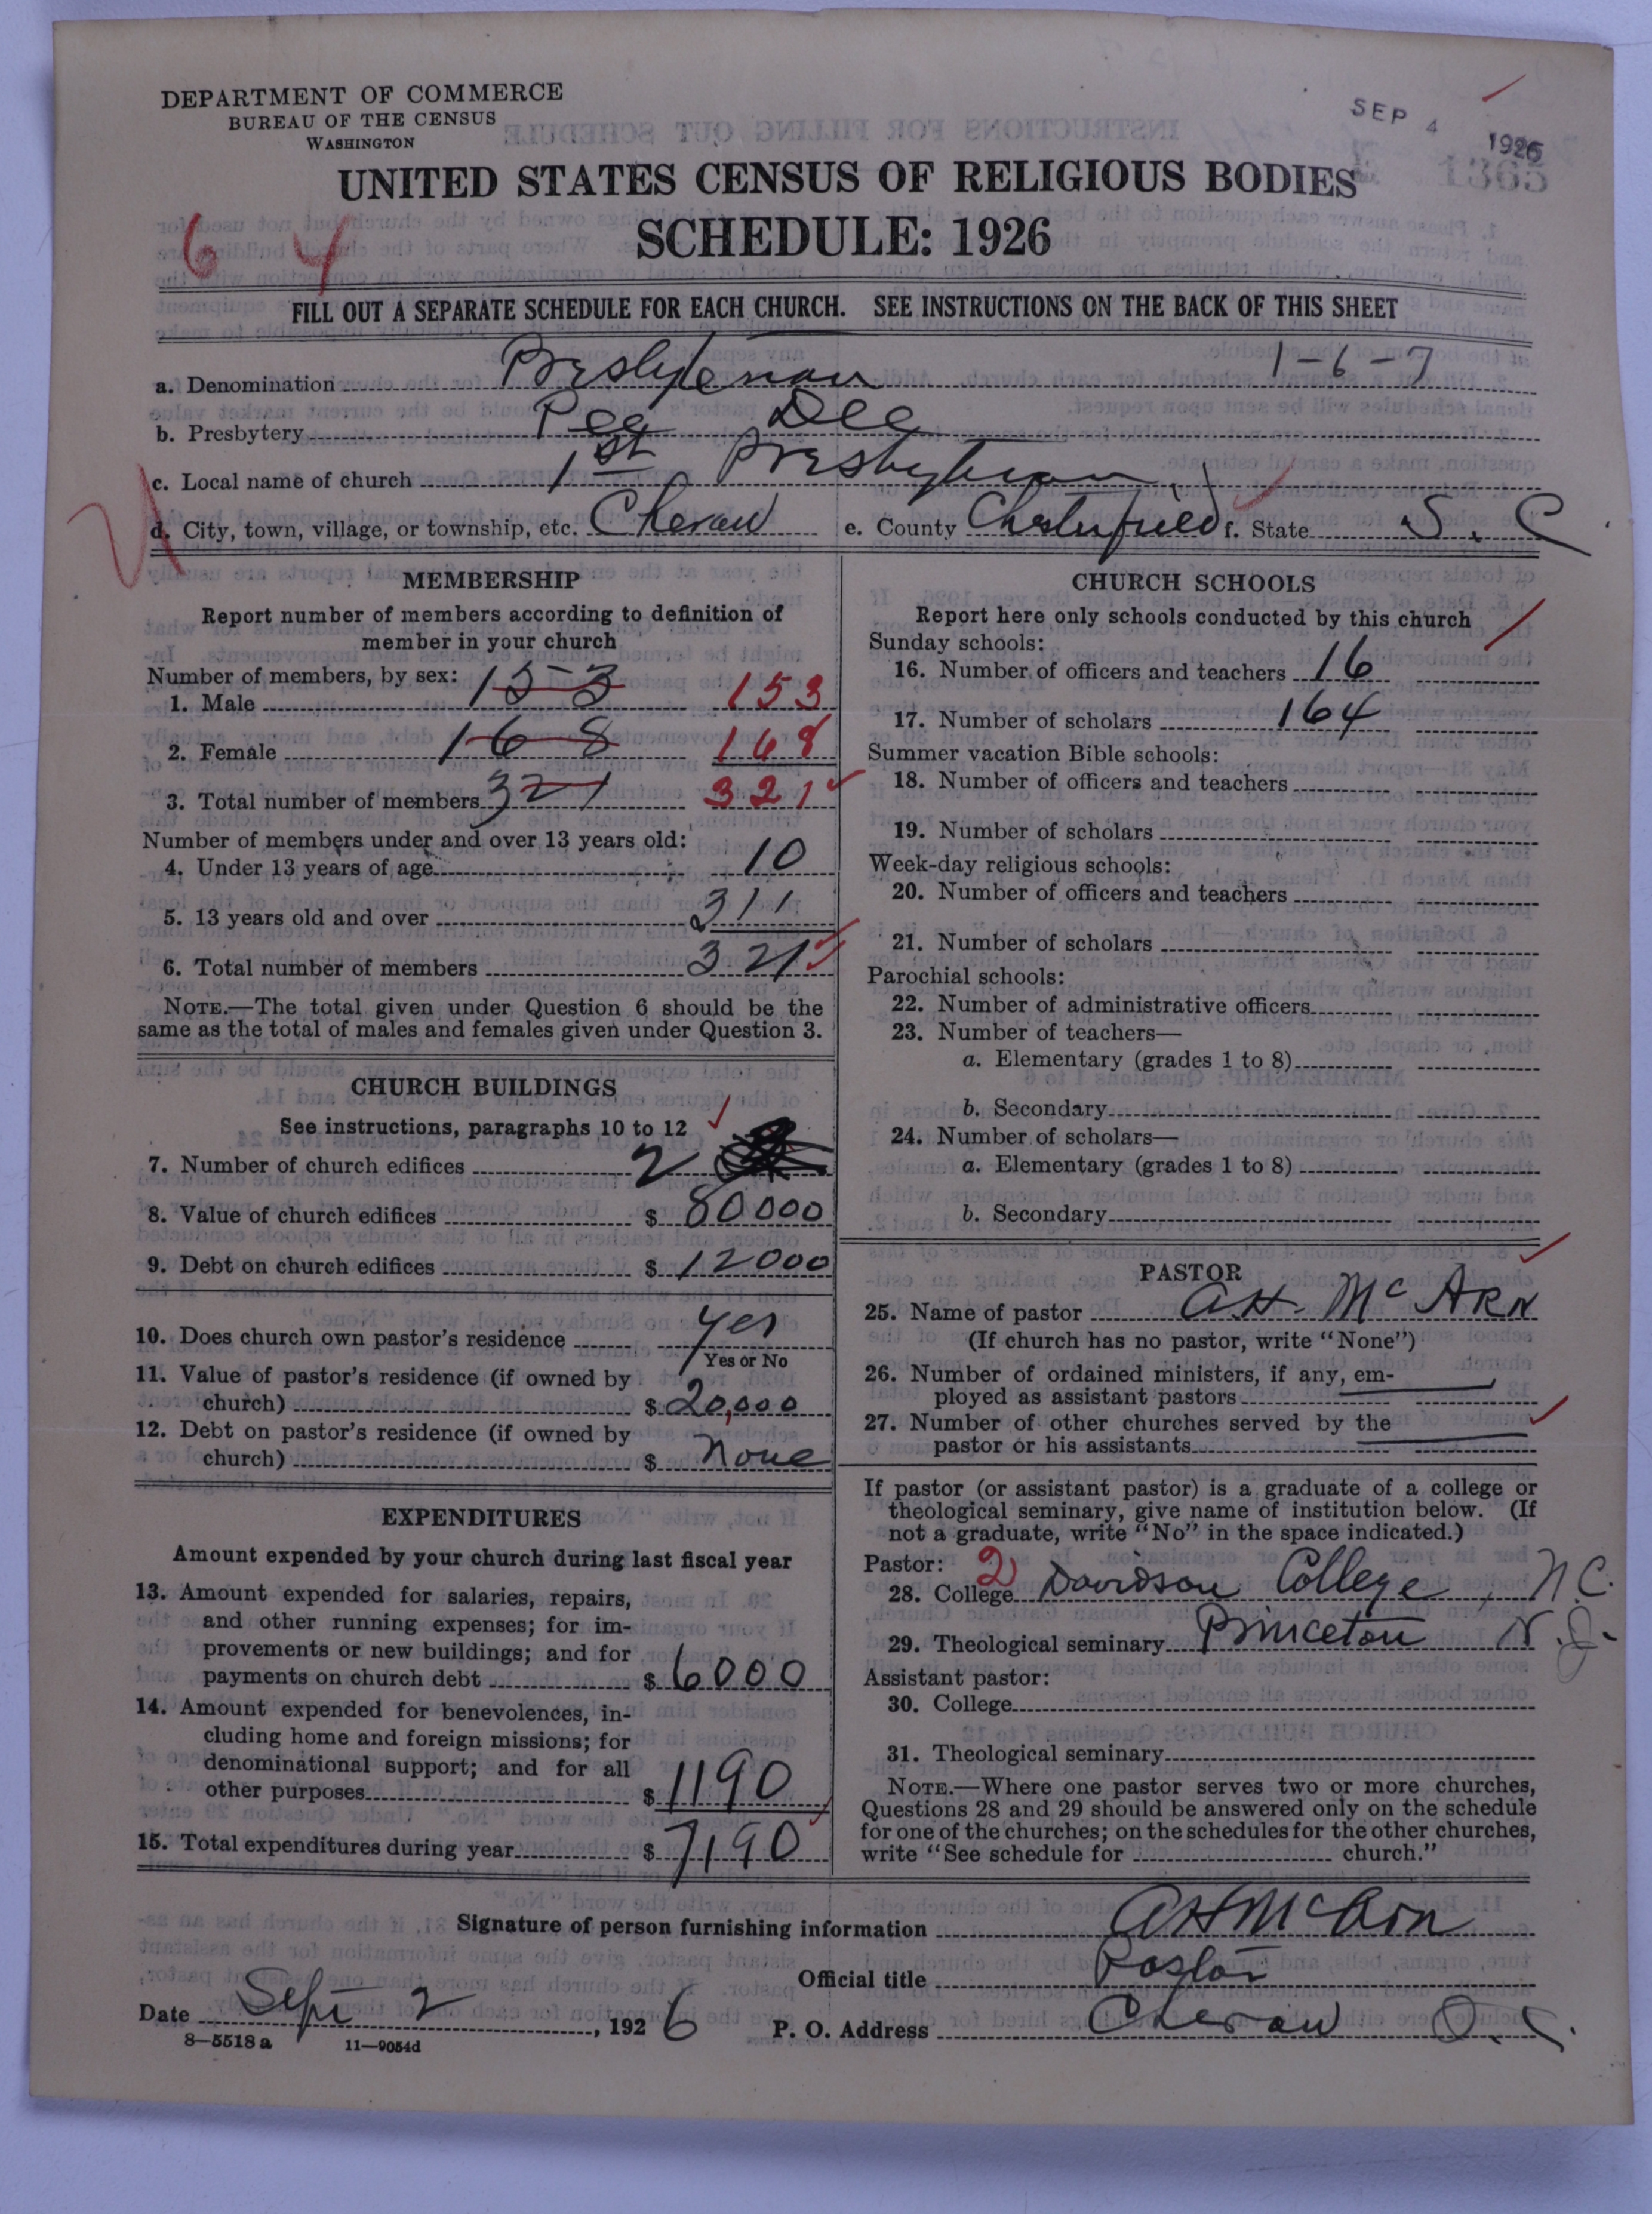 DEPARTMENT OF COMMERCE
BUREAU OF THE CENSUS
WASHINGTON
SEP 4 1926
UNITED STATES CENSUS OF RELIGIOUS BODIES
SCHEDULE: 1926
6 4
FILL OUT A SEPARATE SCHEDULE FOR EACH CHURCH. SEE INSTRUCTIONS ON THE BACK OF THIS SHEET
a. Denomination Presbyterian 1-6-7
b. Presbytery Pee Dee
c. Local name of church 1st Presbyterian
d. City, town, village, or township, etc. Cheraw e. County Chesterfield f. State S. C.
MEMBERSHIP
Report number of members according to definition of
member in your church
Number of members, by sex:
1. Male 153 153
2. Female 168 168
3. Total number of members 321 321
Number of members under and over 13 years old:
4. Under 13 years of age 10
5. 13 years old and over 311
6. Total number of members 321
NOTE.—The total given under Question 6 should be the
same as the total of males and females given under Question 3.
CHURCH BUILDINGS
See instructions, paragraphs 10 to 12
7. Number of church edifices 2
8. Value of church edifices $ 80000
9. Debt on church edifices $ 12000
10. Does church own pastor's residence yes
Yes or No
11. Value of pastor's residence (if owned by
church) $ 20,000
12. Debt on pastor's residence (if owned by
church) $ None
EXPENDITURES
Amount expended by your church during last fiscal year
13. Amount expended for salaries, repairs,
and other running expenses; for im-
provements or new buildings; and for
payments on church debt $ 6000
14. Amount expended for benevolences, in-
cluding home and foreign missions; for
denominational support; and for all
other purposes $ 1190
15. Total expenditures during year $ 7190
CHURCH SCHOOLS
Report here only schools conducted by this church
Sunday schools:
16. Number of officers and teachers 16
17. Number of scholars 164
Summer vacation Bible schools:
18. Number of officers and teachers
19. Number of scholars
Week-day religious schools:
20. Number of officers and teachers
21. Number of scholars
Parochial schools:
22. Number of administrative officers
23. Number of teachers—
a. Elementary (grades 1 to 8)
b. Secondary
24. Number of scholars—
a. Elementary (grades 1 to 8)
b. Secondary
PASTOR
25. Name of pastor A H. McARN
(If church has no pastor, write "None")
26. Number of ordained ministers, if any, em-
ployed as assistant pastors
27. Number of other churches served by the
pastor or his assistants
If pastor (or assistant pastor) is a graduate of a college or
theological seminary, give name of institution below. (If
not a graduate, write "No" in the space indicated.)
Pastor: 2
28. College Davidson College, N.C.
29. Theological seminary Princeton N.J.
Assistant pastor:
30. College
31. Theological seminary
NOTE.—Where one pastor serves two or more churches,
Questions 28 and 29 should be answered only on the schedule
for one of the churches; on the schedules for the other churches,
write "See schedule for church."
Signature of person furnishing information A H McArn
Official title Pastor
Date Sept 2, 1926 P. O. Address Cheraw S. C.
8—5518 a 11—9054d